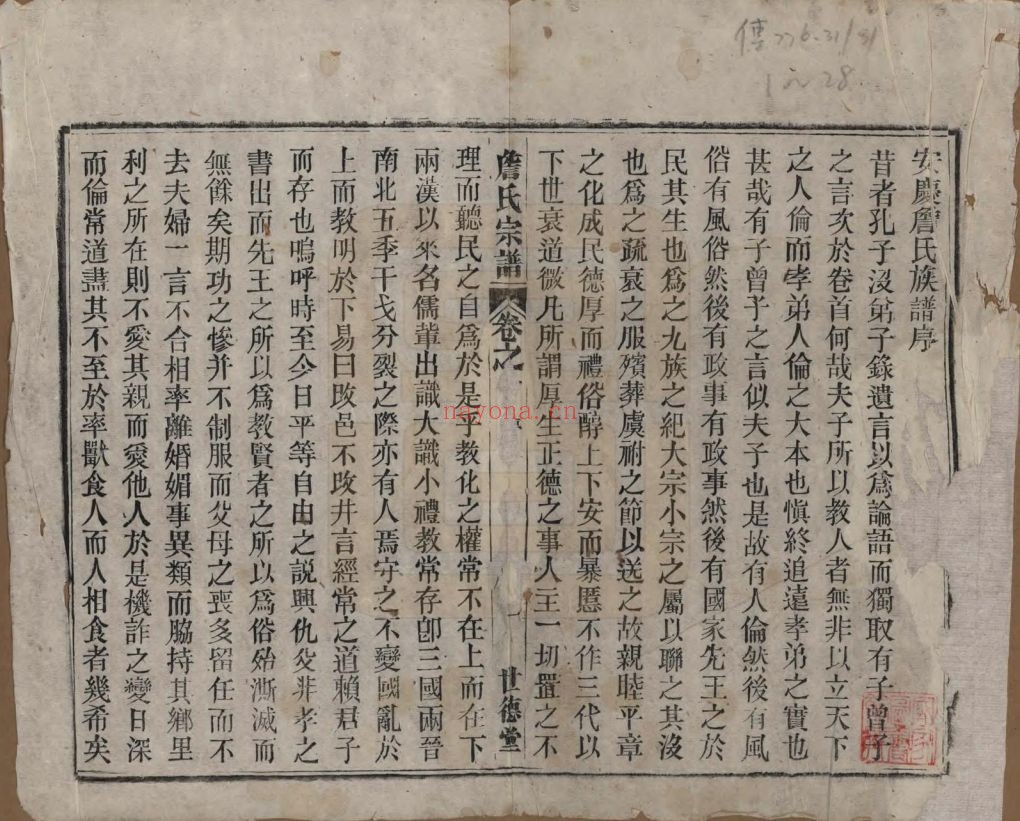 傳776.31/81
1~28
安慶詹氏族譜序
昔者孔子沒弟子錄遺言以爲論語而獨取有子曾子
之言次於卷首何哉夫子所以教人者無非以立天下
之人倫而孝弟人倫之大本也愼終追遠孝弟之實也
甚哉有子曾子之言似夫子也是故有人倫然後有風
俗有風俗然後有政事有政事然後有國家先王之於
民其生也爲之九族之紀大宗小宗之屬以聯之其沒
也爲之疏衰之服殯葬虞祔之節以送之故親睦平章
之化成民德厚而禮俗醇上下安而暴慝不作三代以
下世衰道微凡所謂厚生正德之事人主一切置之不
詹氏宗譜
卷之
一
世德堂
理而聽民之自爲於是乎教化之權常不在上而在下
兩漢以來名儒輩出識大識小禮教常存卽三國兩晉
南北五季干戈分裂之際亦有人焉守之不變國亂於
上而教明於下易曰改邑不改井言經常之道賴君子
而存也嗚呼時至今日平等自由之説興仇父非孝之
書出而先王之所以爲教賢者之所以爲俗殆澌滅而
無餘矣期功之慘并不制服而父母之喪多留任而不
去夫婦一言不合相率離婚媚事異類而脇持其鄉里
利之所在則不愛其親而愛他人於是機詐之變日深
而倫常道盡其不至於率獸食人而人相食者幾希矣
nayona.cn